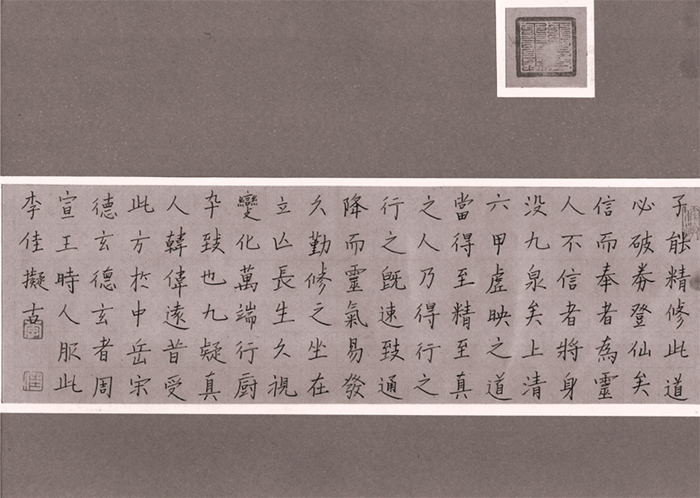 子能精修此道
必破券登仙矣
信而奉者為靈
人不信者將身
没九泉矣上清
六甲虛映之道
當得至精至真
之人乃得行之
行之既速致通
降而靈氣易發
久勤修之坐在
立亡長生久視
變化萬端行厨
卒致也九疑真
人韓偉遠昔受
此方於中岳宋
德玄德玄者周
宣王時人服此
李佳擬古